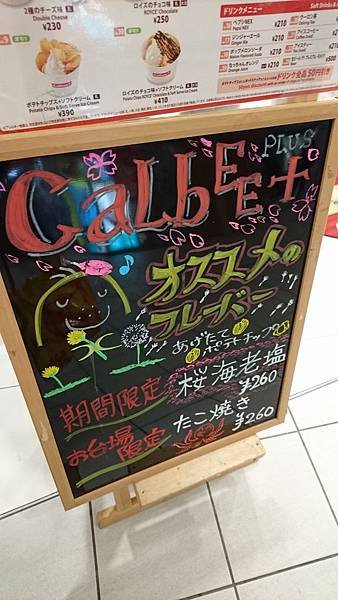 2種のチーズ味
Double Cheese
¥230
ロイズのチョコ味
ROYCE' Chocolate
¥250
ポテトチップス×ソフトクリーム
Potato Chips & Soft Serve Ice Cream
¥390
ロイズのチョコ味×ソフトクリーム
¥410
ドリンクメニュー
ペプシNEX
Pepsi NEX
¥210
ジンジャーエール
Ginger Ale
¥210
¥210
¥210
ウーロン茶
Oolong Tea
¥210
アイスコーヒー
¥210
アイスティー
¥210
ドリンク全品50円引き
CaLbEE+
PLUS
オススメの
フレーバー
あげたて
ポテトチップ
期間限定
桜海老塩
¥260
お台場
限定
たこ焼き
¥260